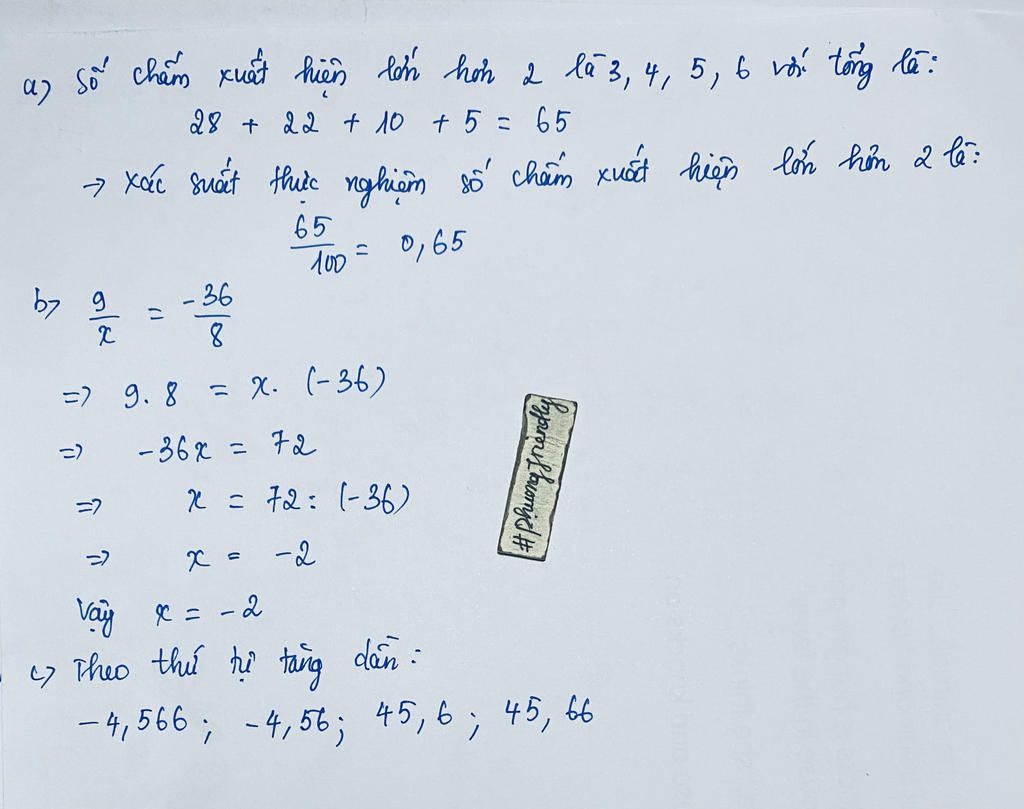 a) Số chấm xuất hiện lớn hơn 2 là 3, 4, 5, 6 với tổng là:
28 + 22 + 10 + 5 = 65
→ xác suất thực nghiệm số chấm xuất hiện lớn hơn 2 là:
65/100 = 0,65
b) 9/x = -36/8
=> 9. 8 = x. (-36)
=> -36x = 72
=> x = 72 : (-36)
=> x = -2
Vậy x = -2
c) Theo thứ tự tăng dần:
-4,566; -4,56; 45,6; 45,66